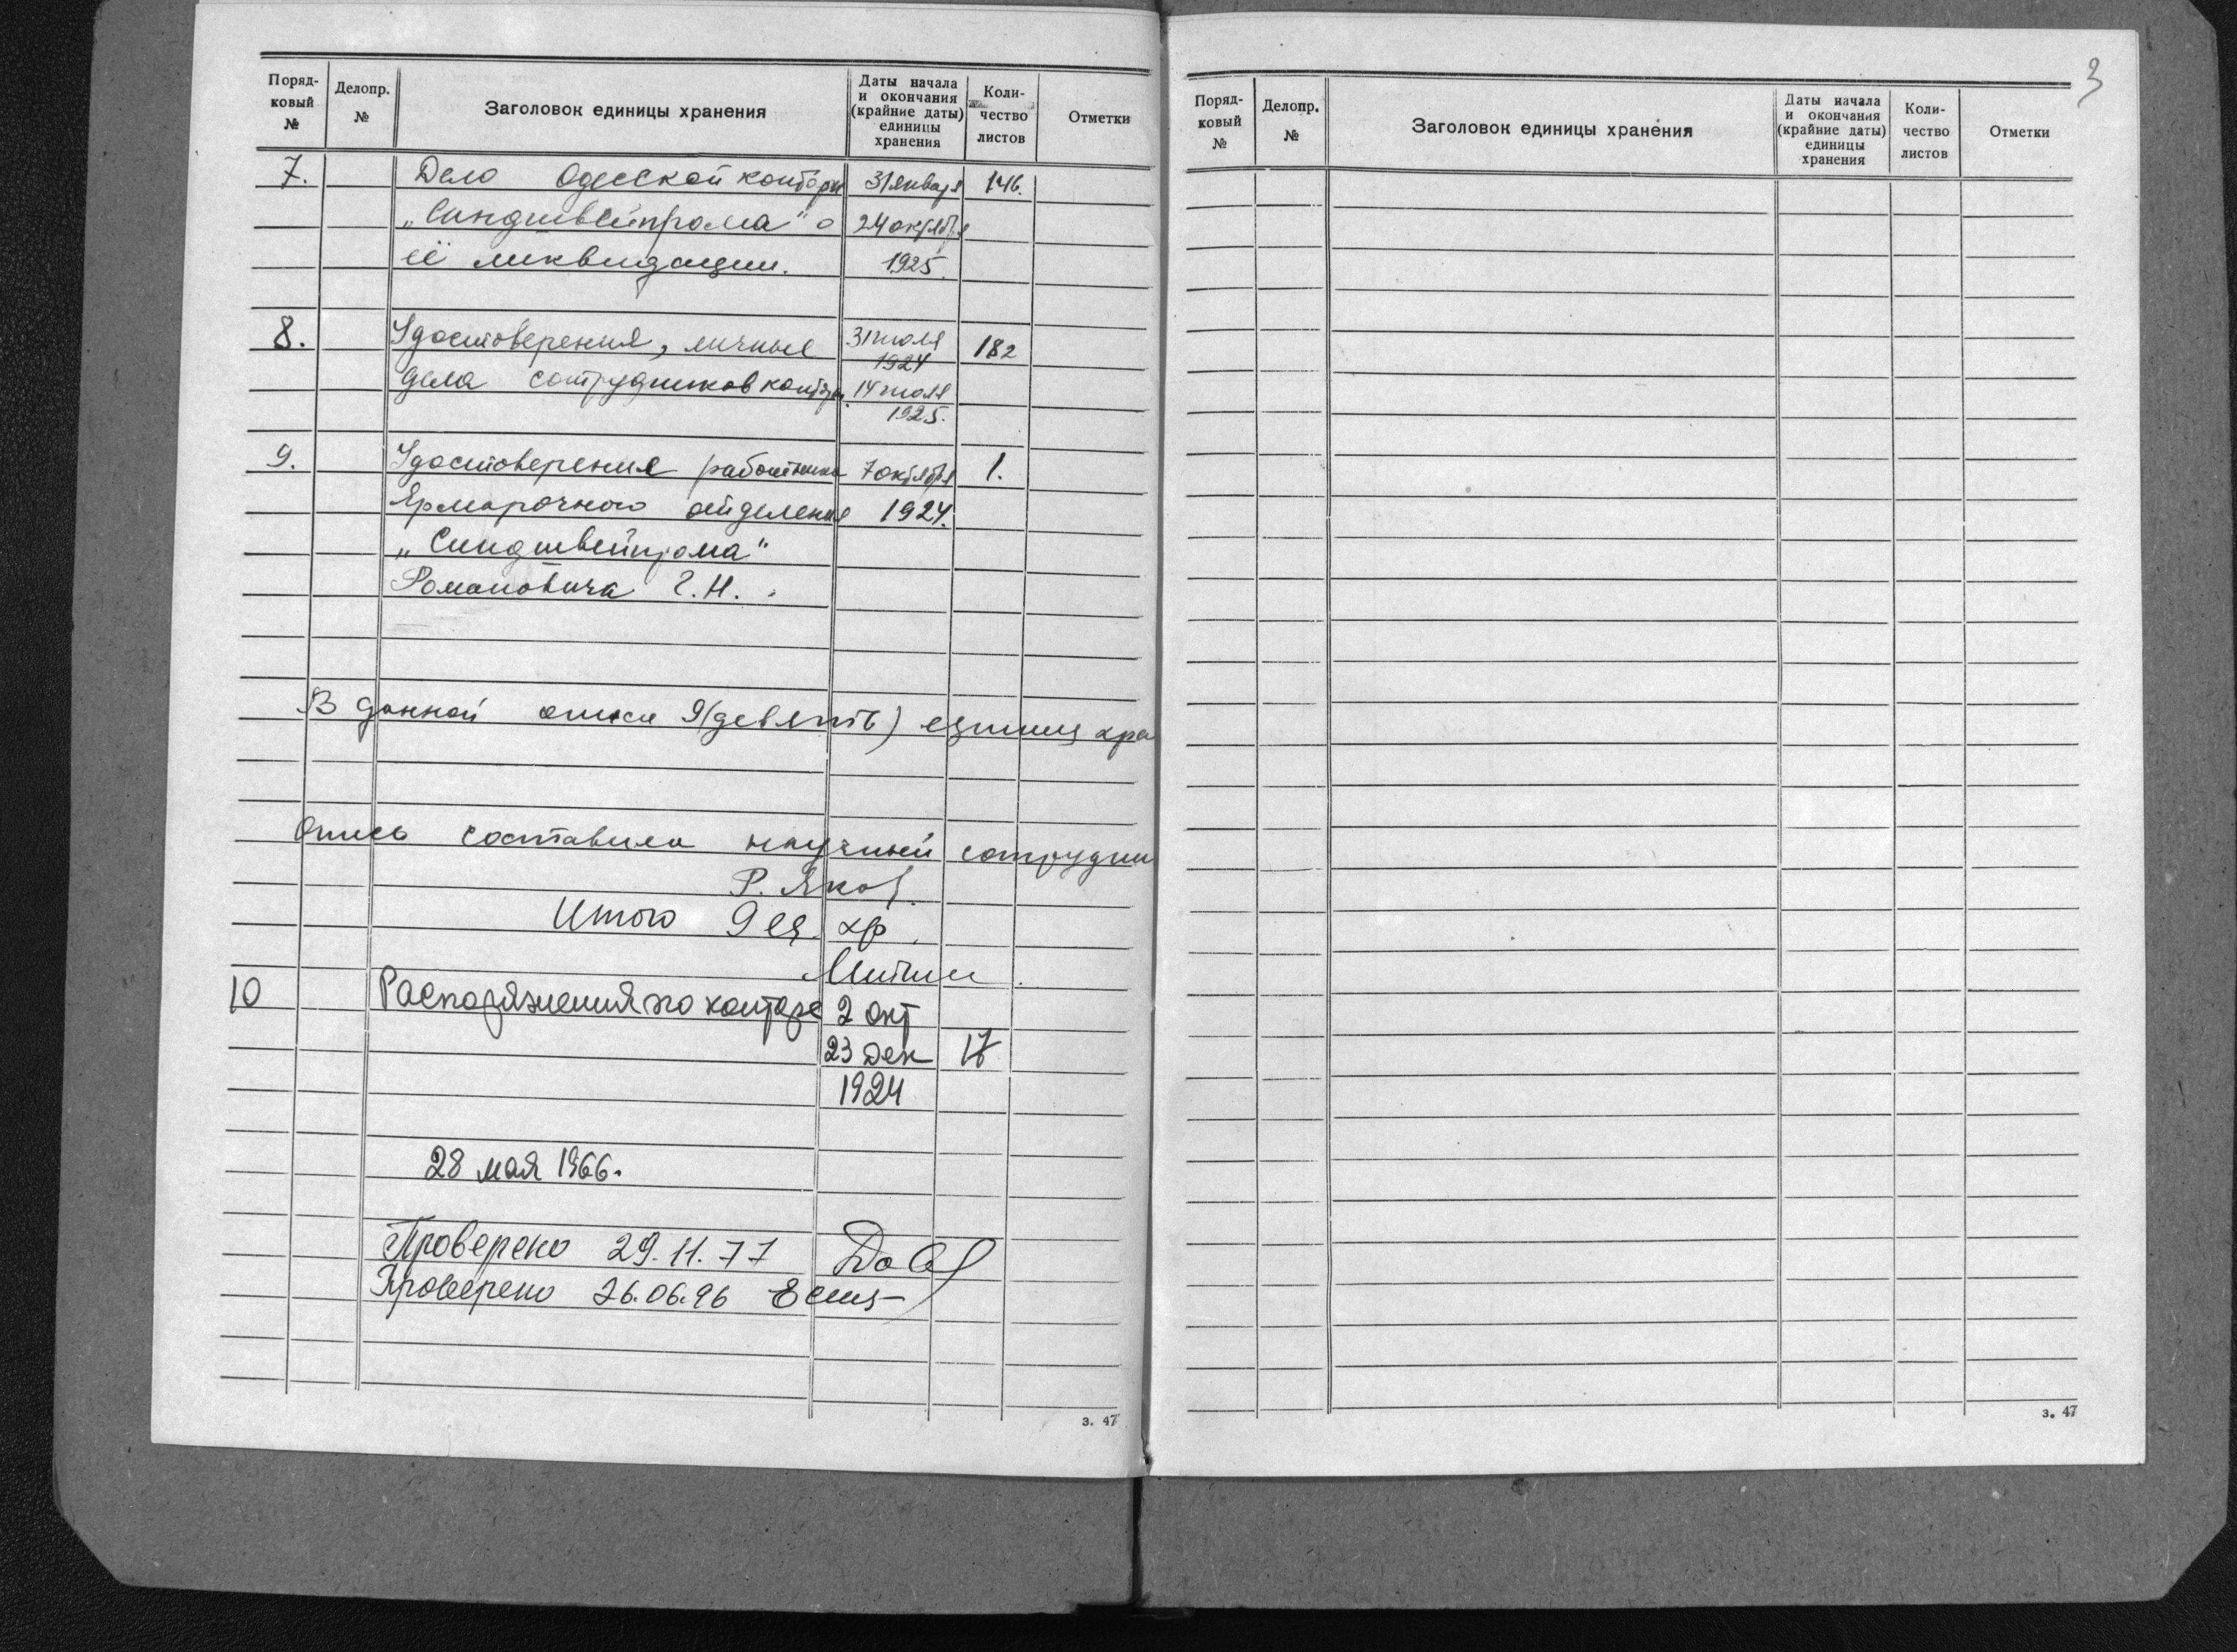 Поряд-
ковый
№
Делопр.
№
Заголовок единицы хранения
Даты начала
и окончания
(крайние даты)
единицы
хранения
Коли-
чество
листов
Отметки
7. Дело Одесской конторы 31 января 146.
„Синдшвейпрома" о 24 октября
её ликвидации. 1925.
8. Удостоверения, личные 31 июля 182
1924
дела сотрудников конторы. 14 июля
1925.
9. Удостоверение работника 7 октября 1.
Ярмарочного отделения 1924.
„Синдшвейпрома"
Романовича Г. Н.
В данной описи 9 (девять) единиц хра
Опись составила научный сотрудни
Р. Яков
Итого 9 ед. хр.
10 Распоряжения по конторе 2 окт
23 дек 17
1924
28 мая 1966.
Проверено 29.11.77
Проверено 26.06.96
з. 47
3
Поряд-
ковый
№
Делопр.
№
Заголовок единицы хранения
Даты начала
и окончания
(крайние даты)
единицы
хранения
Коли-
чество
листов
Отметки
з. 47